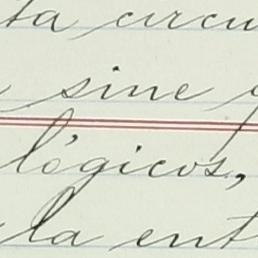 ta circu
sine y
lógicos,
la ent